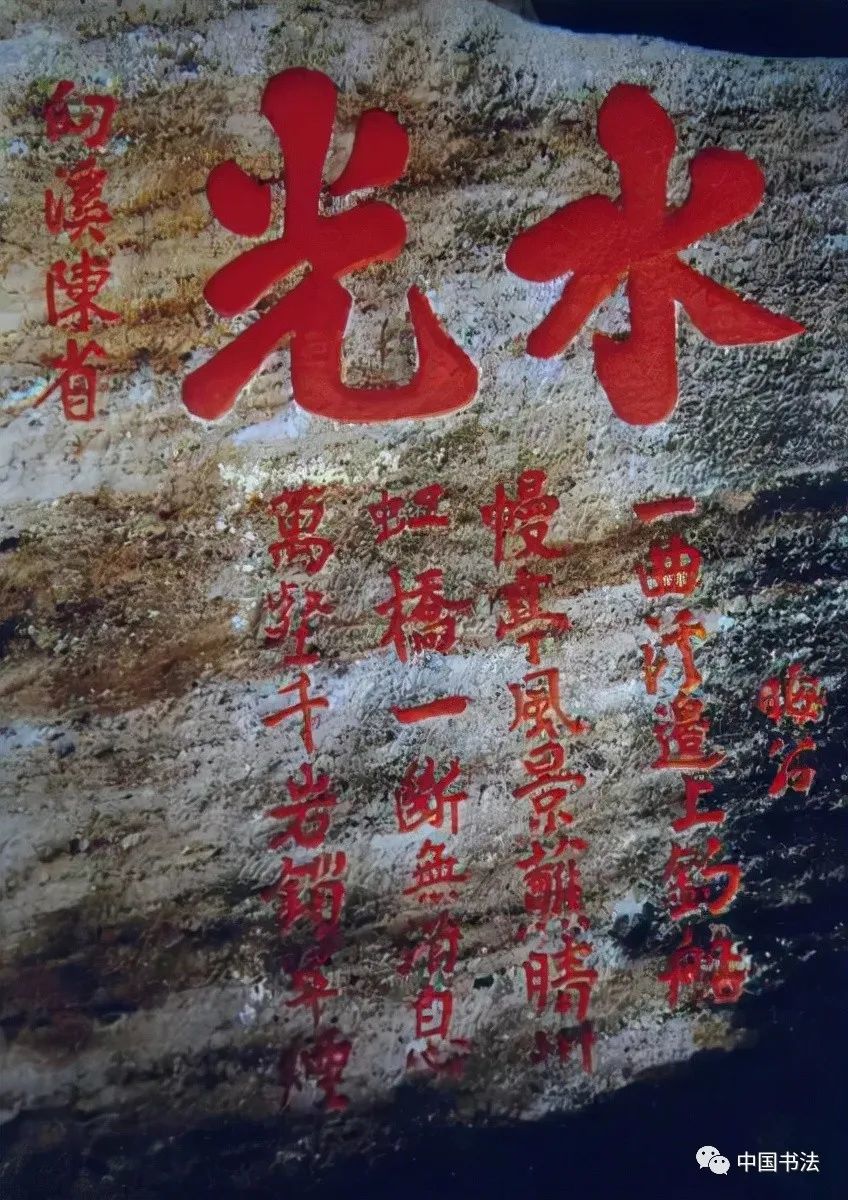 水光
晦公
一曲溪邊上釣船
幔亭風景蘸晴川
虹橋一斷無消息
萬壑千岩鎖翠煙
幼溪陳省
中国书法